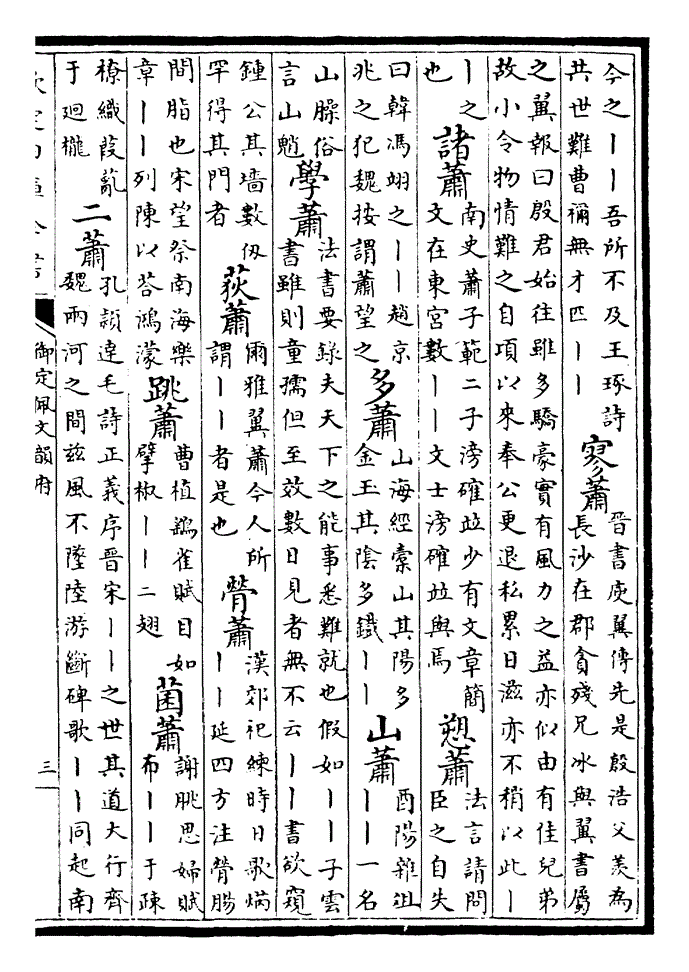 今之丨丨吾所不及王琢詩
共世難曹禰無才匹丨丨
寥蕭
晉書庾翼傳先是殷浩父羡為
長沙在郡貪殘兄冰與翼書屬
之翼報曰殷君始往雖多驕豪實有風力之益亦似由有佳兒弟
故小令物情難之自項以來奉公更退私累日滋亦不稍以此丨
丨之
也
諸蕭
南史蕭子範二子滂確竝少有文章簡
文在東宮數丨丨文士滂確竝與焉
愬蕭
法言請問
臣之自失
曰韓馮翊之丨丨趙京
兆之犯魏按謂蕭望之
多蕭
山海經橐山其陽多
金玉其陰多鐵丨丨
山蕭
酉陽雜俎
丨丨一名
山臊俗
言山魈
學蕭
法書要錄夫天下之能事悉難就也假如丨丨子雲
書雖則童孺但至效數日見者無不云丨丨書欲窺
鍾公其墻數仭
罕得其門者
荻蕭
爾雅翼蕭今人所
謂丨丨者是也
膋蕭
漢郊祀練時日歌焫
丨丨延四方注膋腸
間脂也宋望祭南海樂
章丨丨列陳以荅鴻濛
跳蕭
曹植鷂雀賦目如
擘椒丨丨二翅
菌蕭
謝朓思婦賦
布丨丨于疎
橑織葭薍
于迴櫳
二蕭
孔穎達毛詩正義序晉宋丨丨之世其道大行齊
魏兩河之間茲風不墜陸游斷碑歌丨丨同起南
欽定四庫全書
御定佩文韻府
三